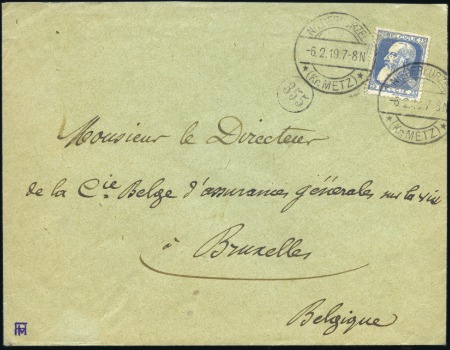 -6.2.19.7-8N
★(Kr. METZ)★
BELGIQUE
BELGIË
-6.2.19.7-8N
★(Kr. METZ)★
355
Monsieur le Directeur
de la Cie Belge d'assurances générales sur la vie
à Bruxelles
Belgique